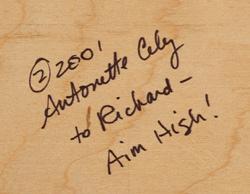 ② 2001
Antonette Cely
to Richard –
Aim High!